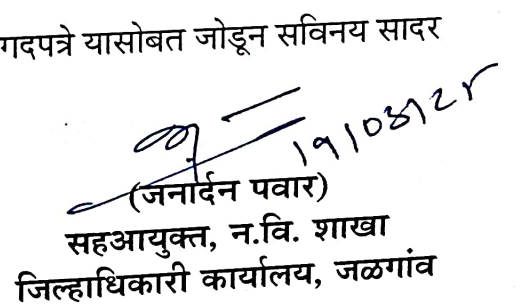 गदपत्रे यासोबत जोडून सविनय सादर
19/03/25
(जनार्दन पवार)
सहआयुक्त, न.वि. शाखा
जिल्हाधिकारी कार्यालय, जळगांव